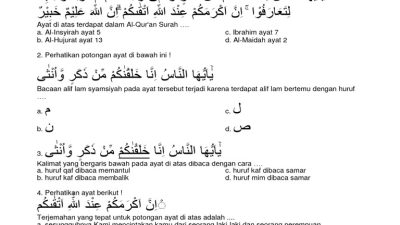 لِتَعَارَفُوْا ۚ اِنَّ اَكْرَمَكُمْ عِنْدَ اللّٰهِ اَتْقٰىكُمْ ۗاِنَّ اللّٰهَ عَلِيْمٌ خَبِيْرٌ
Ayat di atas terdapat dalam Al-Qur'an Surah ....
a. Al-Insyirah ayat 5 c. Ibrahim ayat 7
b. Al-Hujurat ayat 13 d. Al-Maidah ayat 2
2. Perhatikan potongan ayat di bawah ini !
يٰٓاَيُّهَا النَّاسُ اِنَّا خَلَقْنٰكُمْ مِّنْ ذَكَرٍ وَّاُنْثٰى
Bacaan alif lam syamsiyah pada ayat tersebut terjadi karena terdapat alif lam bertemu dengan huruf
....
a. م c. ل
b. ن d. ص
3. يٰٓاَيُّهَا النَّاسُ اِنَّا خَلَقْنٰكُمْ مِّنْ ذَكَرٍ وَّاُنْثٰى
Kalimat yang bergaris bawah pada ayat di atas dibaca dengan cara ....
a. huruf qaf dibaca memantul c. huruf kaf dibaca samar
b. huruf kaf dibaca membalik d. huruf mim dibaca samar
4. Perhatikan ayat berikut !
اِنَّ اَكْرَمَكُمْ عِنْدَ اللّٰهِ اَتْقٰىكُمْ
Terjemahan yang tepat untuk potongan ayat di atas adalah ....
a. sesungguhnya Kami menciptakan kamu dari seorang laki-laki dan seorang perempuan